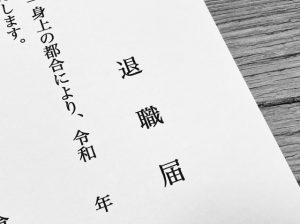 退職届
一身上の都合により、令和　年
します。